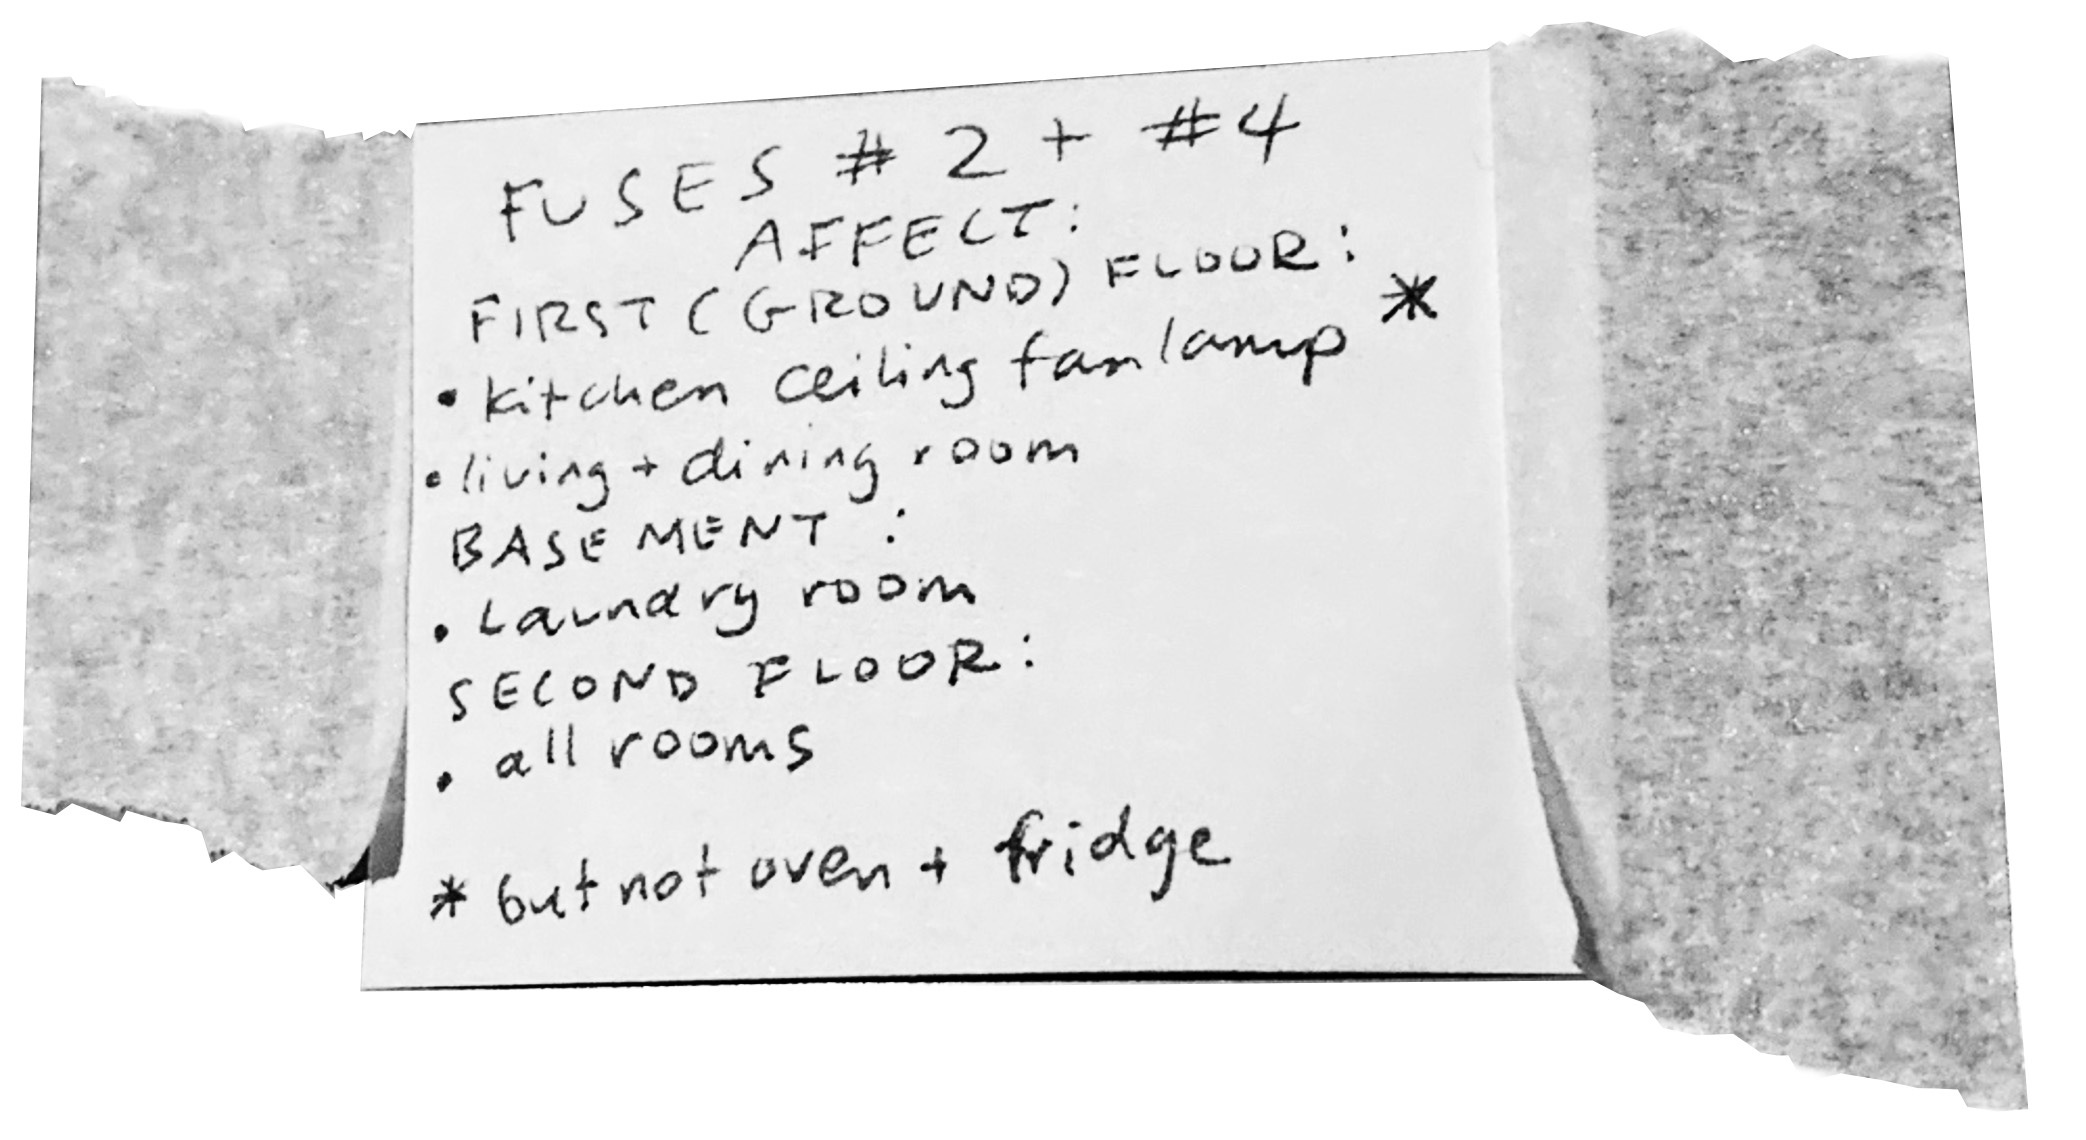 FUSES # 2 + #4
AFFECT:
FIRST (GROUND) FLOOR:
• kitchen ceiling fan/lamp *
• living + dining room
BASEMENT:
• Laundry room
SECOND FLOOR:
• all rooms
* but not oven + fridge